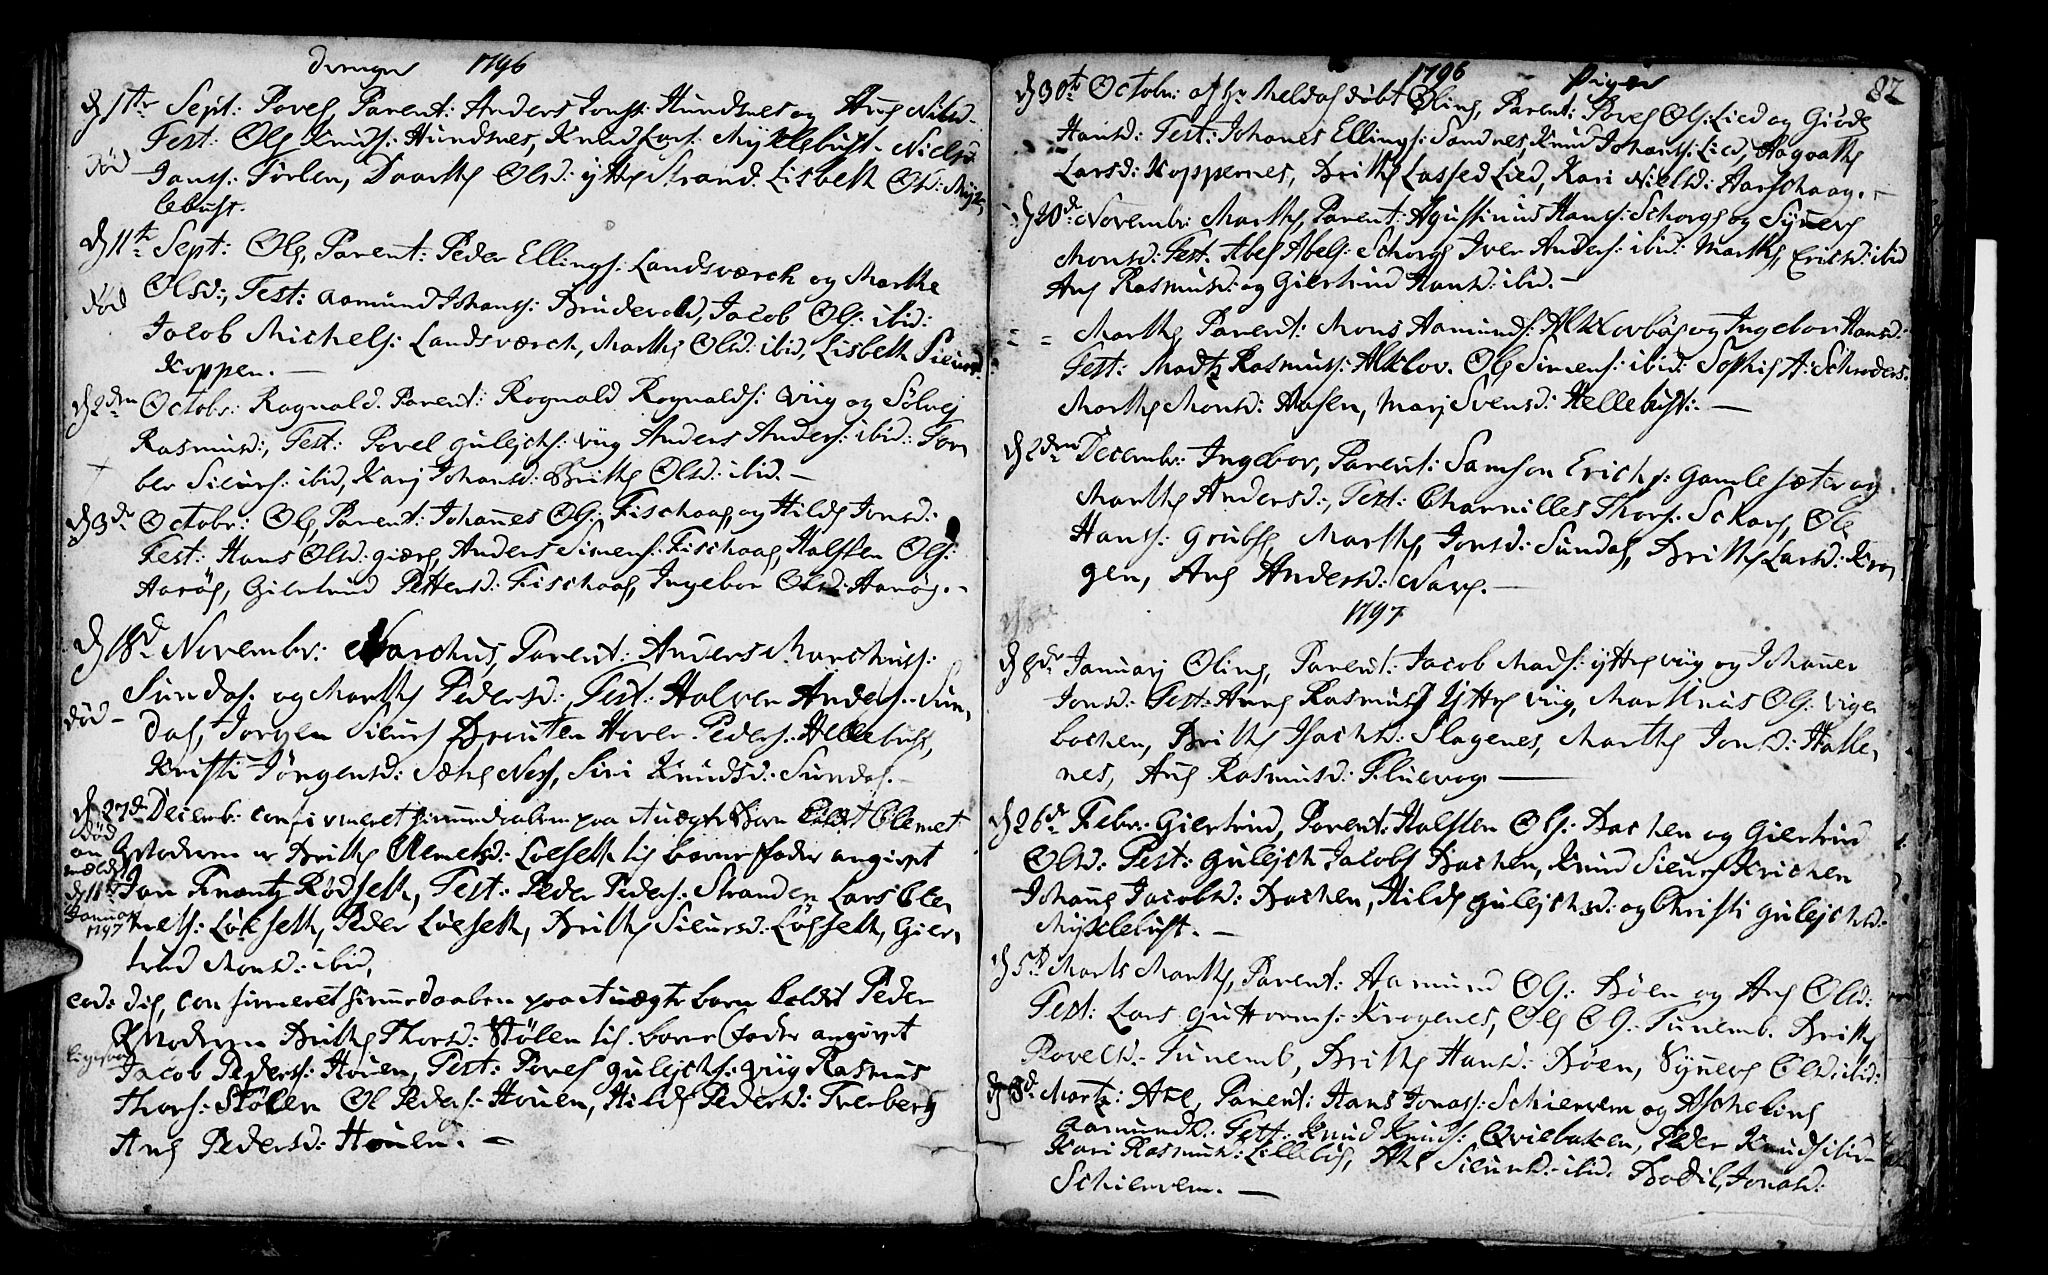 drenge 1796
d 1te Sept: Povel, Parent: Anders Jonss: Hundsnes og Ane Nilsd.
Test: Ole Knuds: Hundsnes, Knud Lars: Myklebust. Niels
død Jans: Dorthe Olsd: ytte Strand. Lisbeth Old: Myk
lebust.
d 11te Sept: Ole, Parent: Peder Ellings: Landsværch og Marthe
død Olsd:, Test: Aamund Johans: Bruderold, Jacob Ols: ibid:
Jacob Michels: Landsværch, Marthe Olsd: ibid, Lisbeth Siurd.
Koppen. —
d 2den Octobr: Rognald. Parent: Rognald Rognalds: Viig og Sølvej
Rasmusd:, Test: Povel Gulejchs: Viig Anders Anders: ibid: Tor
+ ber Siurs: ibid, Karj Johansd: Brithe Olsd: ibid. —
d 3de Octobr: Ole, Parent: Johannes Ols: Fischaae, og Hilde Jonsd:
Test: Hans Olsd: giære, Anders Simens: Fischaae, Halsten Ols:
Aarøe, Giertrud Pettersd: Fischaae, Ingebor Olsd: Aarøe. -
d 18de Novembr: Marchus, Parent: Anders Marchuss:
Sundal og Marthe Pedersd: Test: Halvor Anders: Sun
død - dal, Jørgen Siurs Bruten Hover Peders: Hellebust,
Kristi Jørgensd: Næss, Siri Knudsd: Sundal.
d 27de Decemb: confirmeret hiemmedaaben paa et uægte Barn kaldt Clemet
død Moderen er Brithe Clemetsd: Løeseth til barnefader angivet
an
meldt
d 11te Jan Frantz Rødseth, Test: Peder Peders: Stranden Lars Cle
Januar mets: Løeseth, Peder Løeseth, Brithe Siursd: Løeseth, Gier
1797
trud Monsd: ibid,
eod: die, confirmeret hiemmedaaben paa et uægte barn kaldet Peder
Moderen Brithe Thorsd: Stølen til barnefader angivet
ligesaa Jacob Peders: Houen, Test: Povel Gulejchs: Viig Rasmus
Thors: Stølen Ol Peders: Houen, Hilde Pedersd: Frerberg
Ane Pedersd: Houen. —
1796 Piger 82
d 30te Octobr: af Hr Meldal døbt Oline, Parent: Povel Ols: Lied og Giøde
Hansd: Test: Johanes Ellings: Sandnes, Knud Johans: Lied, Aagaathe
Larsd: Koppernes, Brithe Lassed Lied, Kari Nielsd: Aarschaag. -
d 20de Novembr: Marthe, Parent: Agustinus Hans: Schorge og Synneve
Monsd: Test: Abel Abels: Schorge Iver Anders: ibid: Marthe Erichsd: ibid
Ane Rasmusd: og Giertrud Hansd: ibid. —
= = Marthe, Parent: Mons Aamunds: Alklovbøe og Ingebor Hansd:
Test: Madtz Rasmuss: Alklov. Ole Simens: ibid: Sophie A: Schrøders
Marthe Monsd: Aasen, Marj Svensd: Hellebust. —
d 2den Decembr: Ingebor, Parent: Samson Erichs: Gamlesæter og
Marthe Andersd:, Test: Charnilles Thors: Schare, Ole
Hans: Grubse, Marthe Jonsd: Sundal, Brithe Larsd: Kro
gen, Ane Andersd: Nave. —
1797
d 8de Januarj Oline, Parent: Jacob Mads: ytte Viig og Johanne
Jonsd: Test: Anne Rasmusd Ytte Viig, Marthinus Ols: Vige
bachen, Brithe Isachsd: Slagenes, Marthe Jonsd: Halle
nes, Ane Rasmusd: Fluevog —
d 26de Febr: Giertrud, Parent: Halsten Ols: Bachen og Giertrud
Olsd: Test: Gulejch Jacobs Bachen, Knud Siurs Krichen
Johane Jacobsd: Bachen, Hilde Gulejchsd: og Christi Gulejchsd:
Myklebust. —
d 5te Marts Marthe, Parent: Aamund Ols: Bøen og Ane Olsd:
Test: Lars Guttorms: Krogenes, Ole Ols: Tunemb. Brithe
Povelsd: Tunemb, Brithe Hansd: Bøen, Synneve Olsd: ibid:
d 8de Martz: Ane, Parent: Hans Jonass: Schierven og Ascheline
Aamundsd: Test: Knud Knuds: Qviebaken, Peder Knuds ibid
Kari Rasmusd: Lillebøe, Ane Siursd: ibid. Bodil Jonasd:
Schierven. —